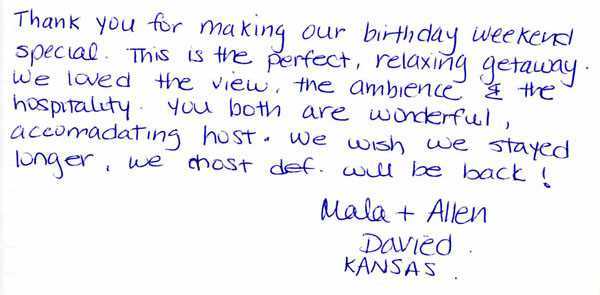 Thank you for making our birthday weekend
special. This is the perfect, relaxing getaway.
We loved the view, the ambience & the
hospitality. You both are wonderful,
accomadating host. We wish we stayed
longer, we most def. will be back!
Mala + Allen
Davied.
KANSAS.